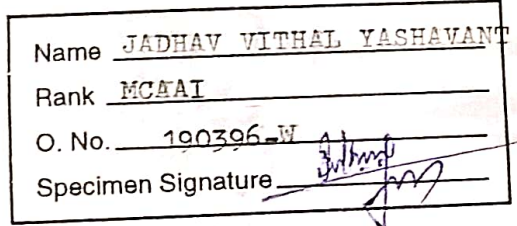 Name JADHAV VITHAL YASHAVANT
Rank MCAAI
O. No. 190396-W
Specimen Signature